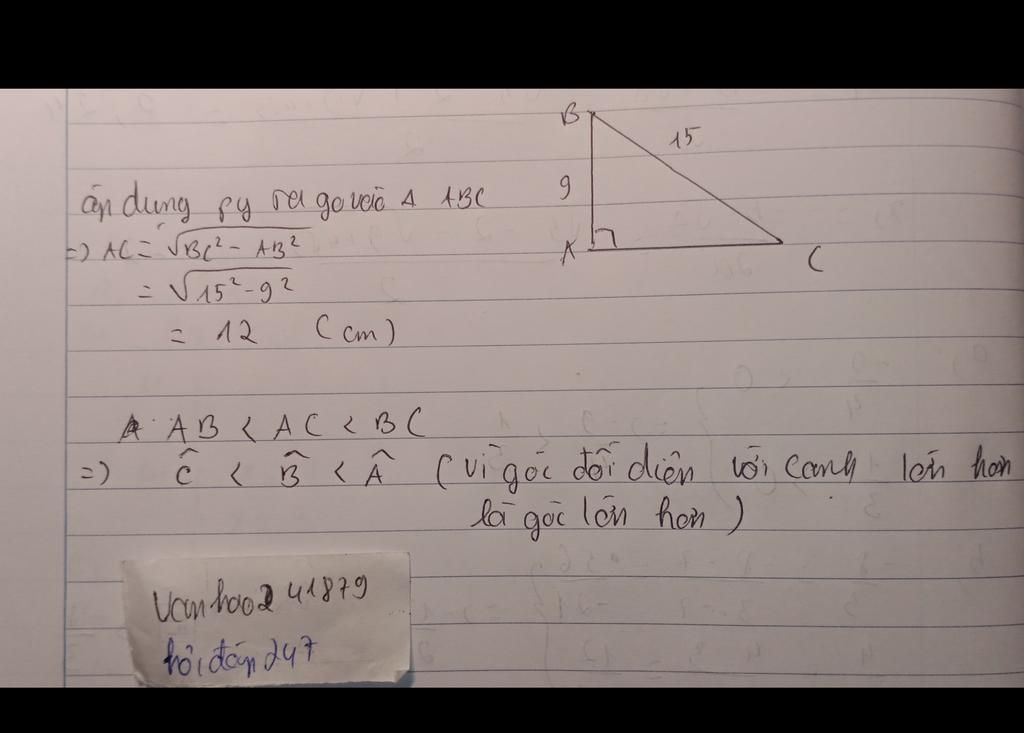 B
15
9
A
C
áp dụng py ta go vào Δ ABC
=> AC = √BC² - AB²
= √15² - 9²
= 12 (cm)
AB < AC < BC
=> Ĉ < B̂ < Â (vì góc đối diện với cạnh lớn hơn
là góc lớn hơn)
vanhao241879
hỏi đáp 247